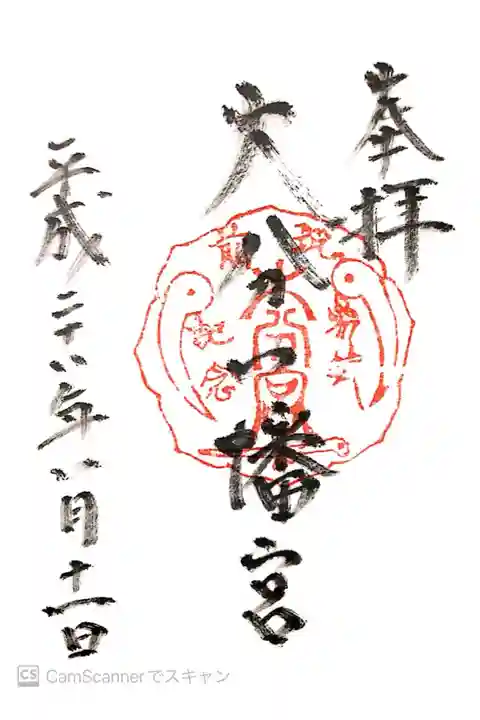 奉拝
大分八幡宮
記念
平成二十八年八月十一日
CS CamScannerでスキャン